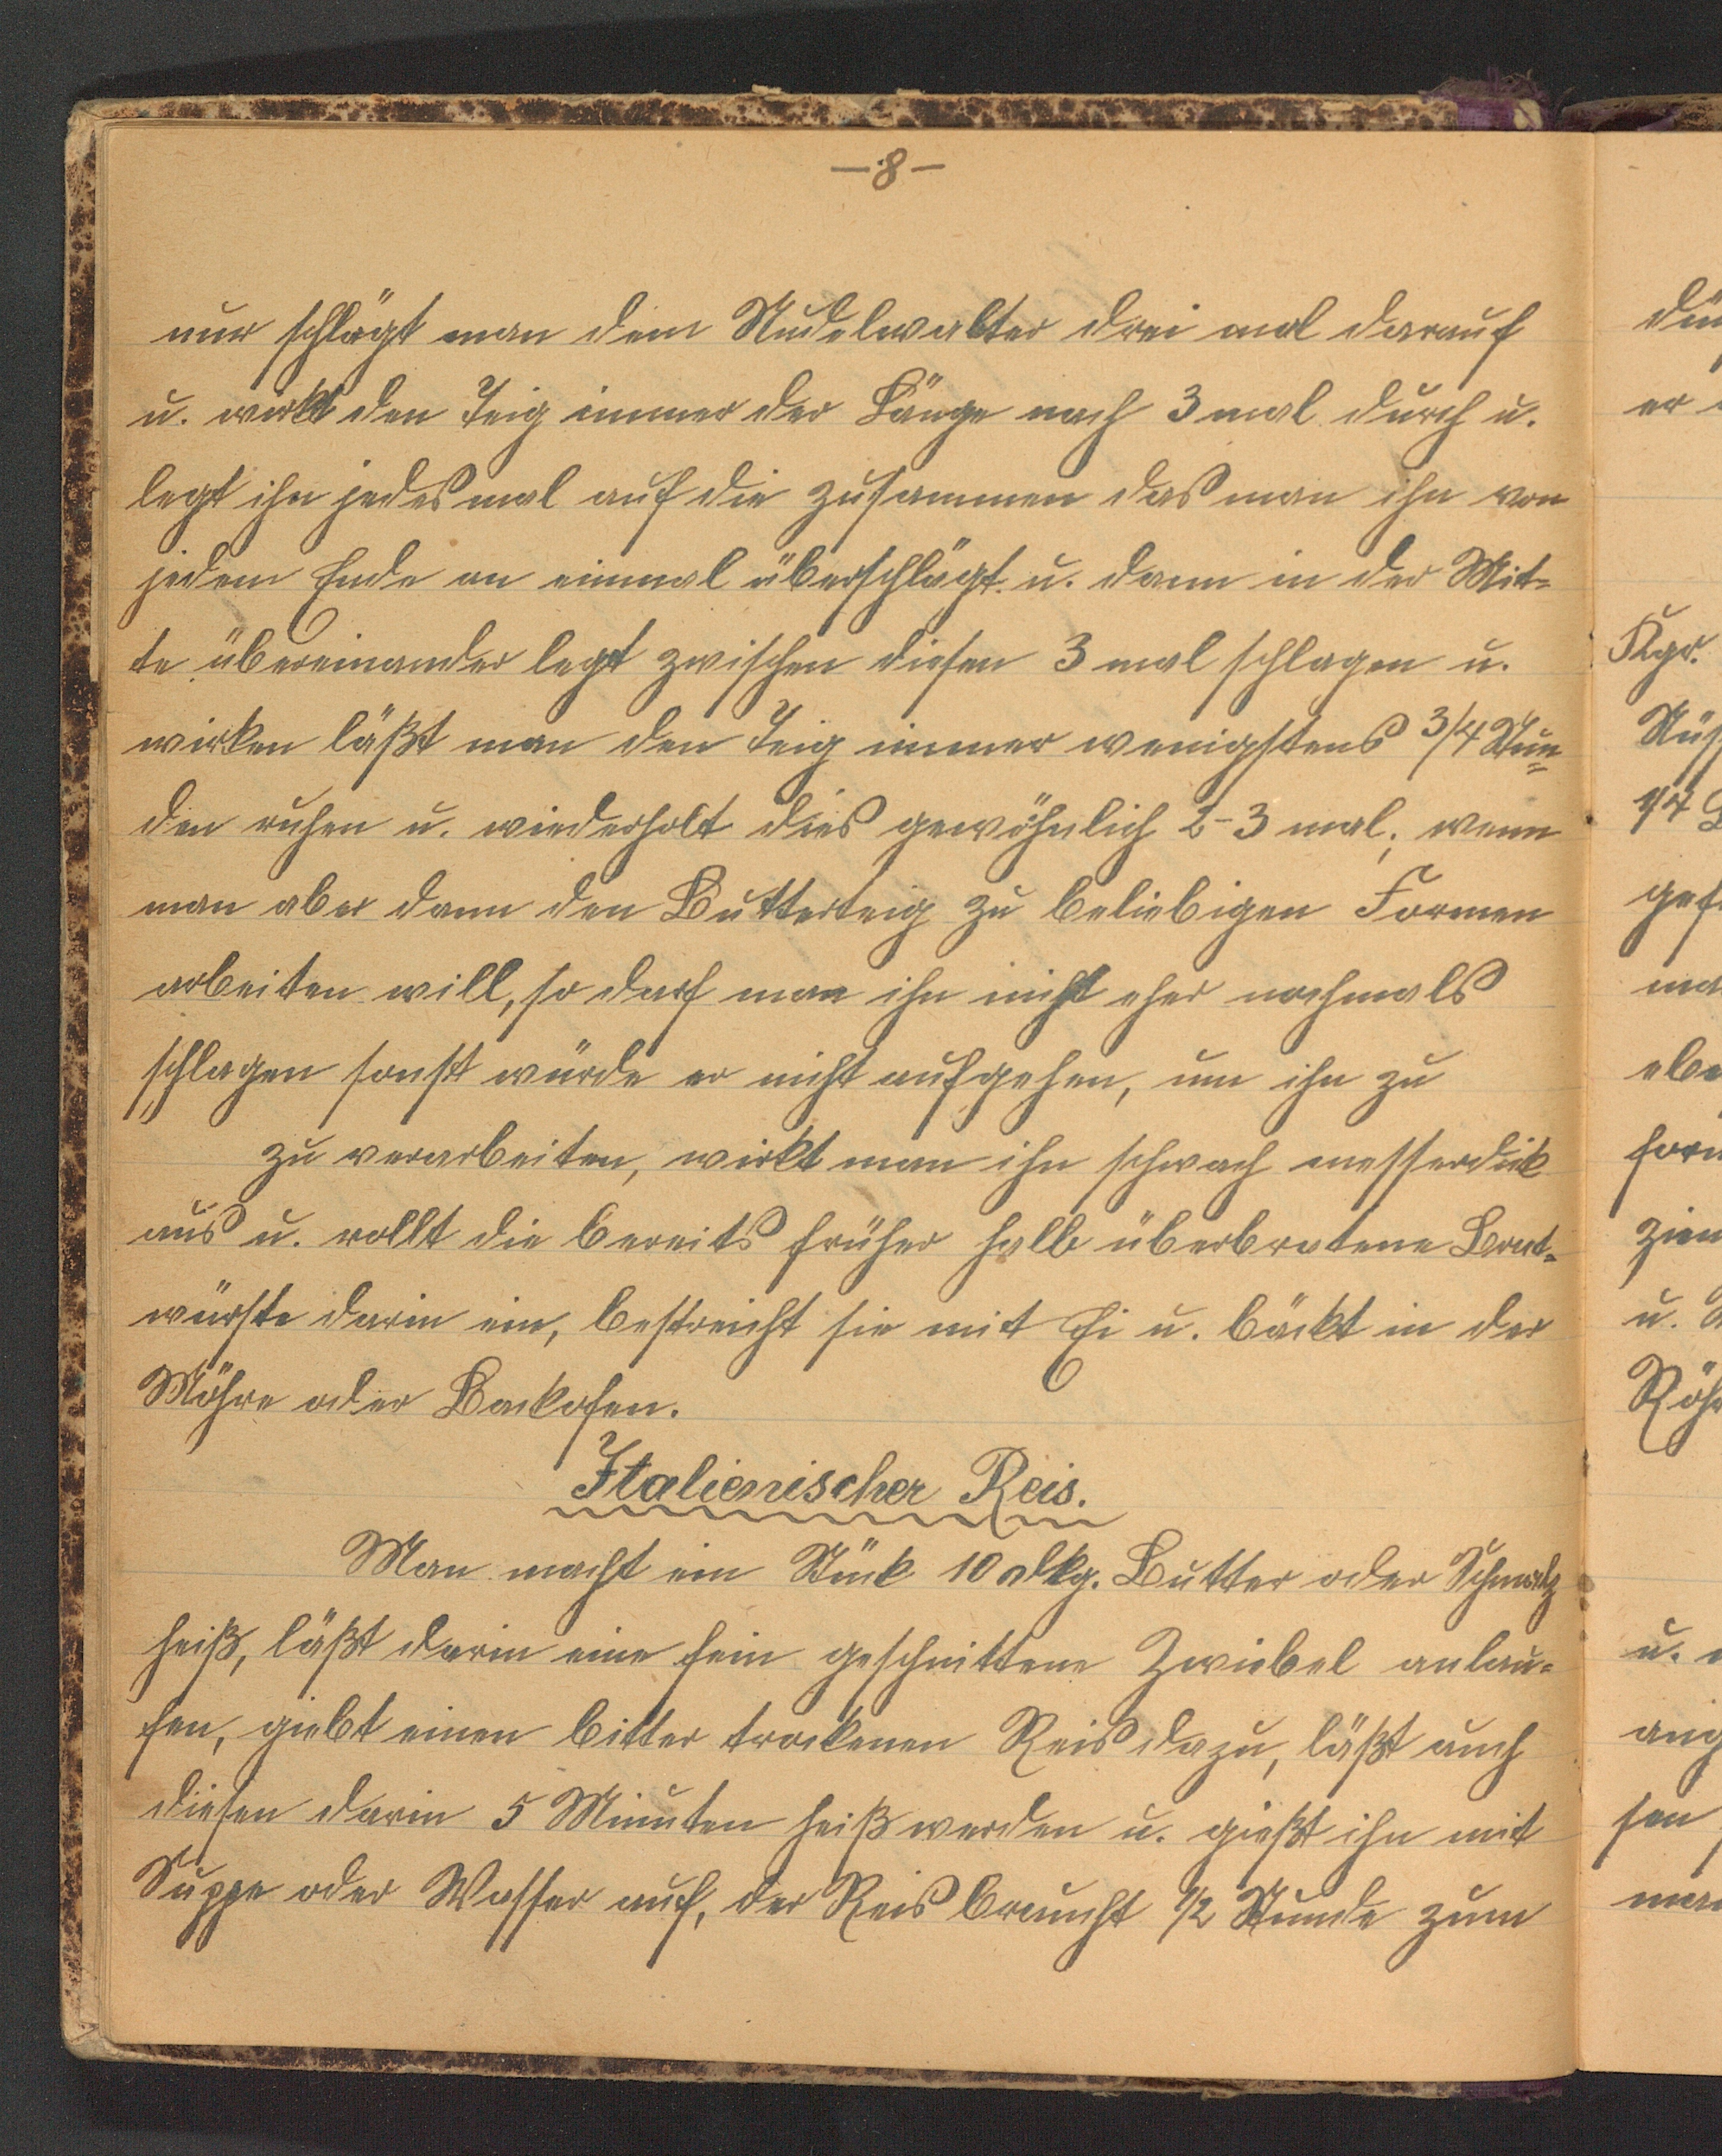 — 8 —
nur schlägt man dem Nudelwalter drei mal darauf
u. wirkt den Teig immer der Länge nach 3 mal durch u.
legt ihn jedesmal auf die zusammen das man ihn von
jedem Ende an einmal überschlägt u. dann in der Mit=
te übereinander legt zwischen diesen 3 mal schlagen u.
wirken läßt man den Teig immer wenigstens 3/4 Stun=
den ruhen u. wiederholt dies gewöhnlich 2-3 mal; wenn
man aber dann den Butterteig zu beliebigen Formen
arbeiten will, so darf man ihn nicht eher nochmals
schlagen sonst würde er nicht aufgehen, um ihn zu
zu verarbeiten, wirkt man ihn schwach messerdick
aus u. rollt die bereits früher halb überbratene Brat=
würste darin ein, bestreicht sie mit Ei u. bäckt in der
Röhre oder Backofen.
Italienischer Reis.
Man macht ein Stück 10 dkg. Butter oder Schmalz
heiß, läßt darin eine fein geschnittene Zwiebel anlau=
fen, giebt einen bitter trockenen Reis dazu, läßt auch
diesen darin 5 Minuten heiß werden u. gießt ihn mit
Suppe oder Wasser auf, der Reis braucht 1/2 Stunde zum